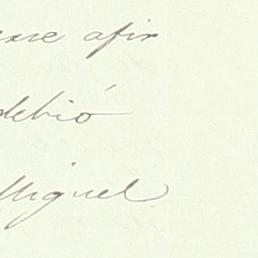 afir
debió
Miguel